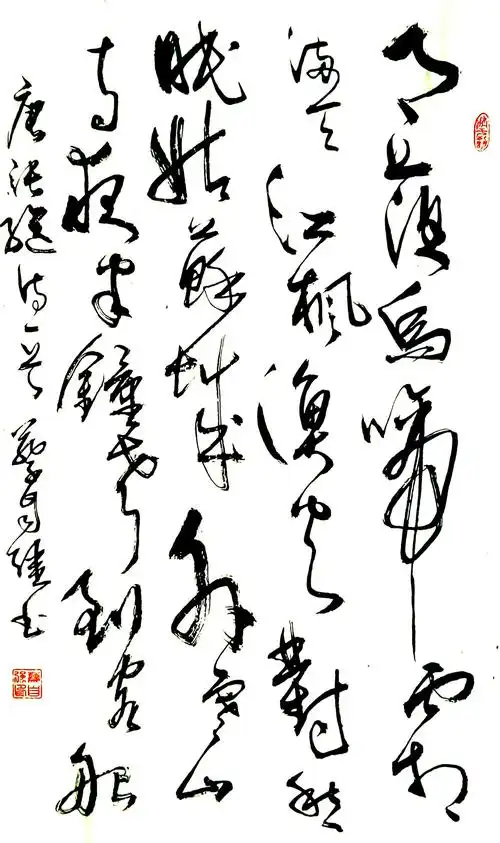 月落烏啼霜
滿天江楓漁火對愁
眠姑蘇城外寒山
寺夜半鐘聲到客船
唐張繼詩一首 蔡 书